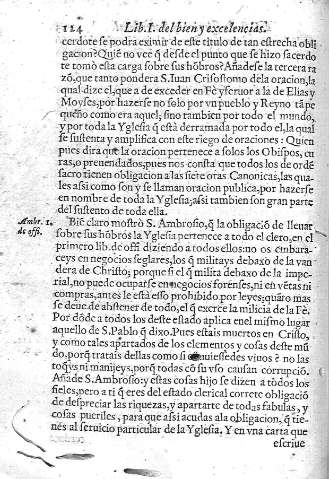 124 Lib. I. del bien y excelencias.
cerdote se podra eximir de este titulo de tan estrecha obli
gacion? Quiē no ve q̄ desde el punto que se hizo sacerdo
te tomò esta carga sobre sus hōbros? Añadese la tercera ra
zō, que tanto pondera S. Iuan Crisostomo de la oracion, la
qual dize el, que a de exceder en Fè y feruor a la de Elias y
Moyses, por hazerse no solo por vn pueblo y Reyno tā pe
queño como era aquel, sino tambien por todo el mundo,
y por toda la Yglesia q̄ està derramada por todo el, la qual
se sustenta y amplifica con este riego de oraciones: Quien
pues dira que la oracion pertenece a solos los Obispos, cu
ras, o prelados, pues nos consta que todos los de ordē
sacro tienen obligacion a las siete oras Canonicas, las qua
les assi como son y se llaman oracion publica, por hazerse
en nombre de toda la Yglesia; assi tambien son gran parte
del sustento de toda ella.
Ambr. 1.
de offi.
Biē claro mostrò S. Ambrosio, q̄ la obligaciō de lleuar
sobre sus hōbros la Yglesia pertenece a todo el clero, en el
primero lib. de offi diziendo a todos ellos: no os embara-
ceys en negocios seglares, los q̄ militays debaxo de la van
dera de Christo; porque si el q̄ milita debaxo de la impe-
rial, no puede ocuparse en negocios forenses, ni en vētas ni
compras, antes le està esso prohibido por leyes; quāro mas
se deue de abstener de todo, el q̄ exerce la milicia de la Fè.
Por dōde a todos los deste estado aplica en el mismo lugar
aquello de S. Pablo q̄ dixo. Pues estais muertos en Cristo,
y como tales apartados de los elementos y cosas deste mū
do, porq̄ tratais dellas como si uiuiesedes viuos ē no las
toq̄ys ni manijeys, porq̄ todas cō su vso causan corrupciō.
Añade S. Ambrosio: y estas cosas hijo se dizen a todos los
fieles, pero a ti q̄ eres del estado clerical corrète obligaciō
de despreciar las riquezas, y apartarte de todas fabulas, y
cosas pueriles, para que assi acudas a la obligacion, q̄ tie-
nes al seruicio particular de la Yglesia. Y en vna carta que
escriue